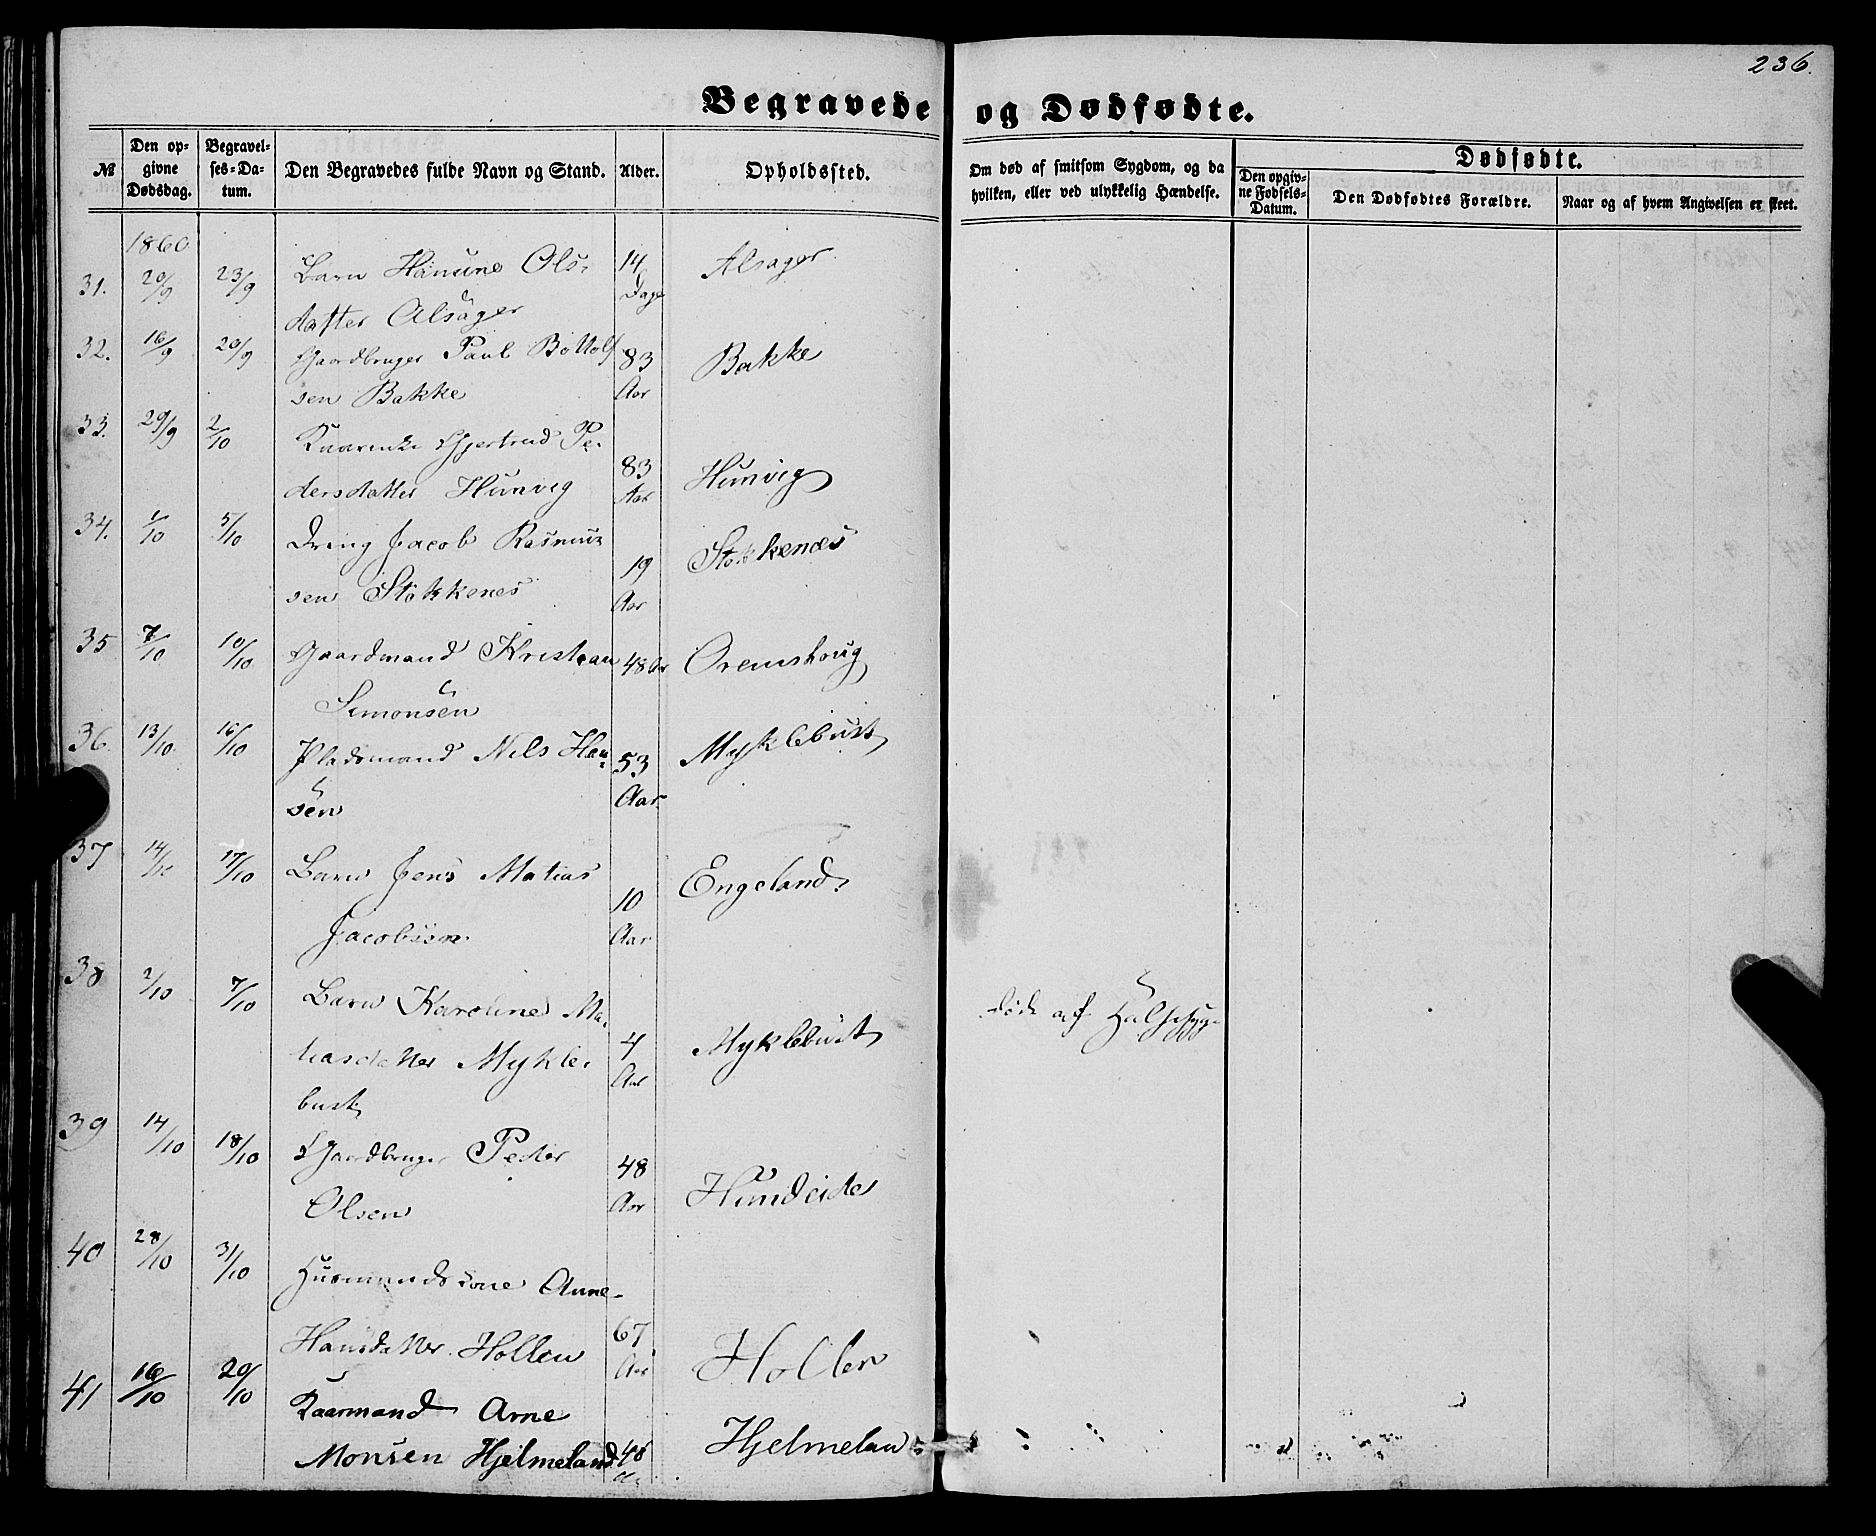 236.
Begravede og Dødfødte.
№
Den opgivne Dødsdag.
Begravelses-Datum.
Den Begravedes fulde Navn og Stand.
Alder.
Opholdssted.
Om død af smitsom Sygdom, og da hvilken, eller ved ulykkelig Hændelse.
Dødfødte.
Den opgivne Fødsels-Datum.
Den Dødfødtes Forældre.
Naar og af hvem Angivelsen er skeet.
1860
31. 20/9 23/9 Barn Hansine Ols- 14 Alsager
datter Alsager Dage
32. 16/9 20/9 Gaardbruger Paul Bottolf 83 Bakke
sen Bakke Aar
33. 29/9 2/10 Kaarenke Gjertrud Pe-
dersdatter Hunveg 83 Aar Hunveg
34. 1/10 5/10 Dreng Jacob Rasmus
sen Stokkenes 19 Aar Stokkenes
35 7/10 10/10 Gaardmand Kristian 48 Aar Oremshoug
Simonsen
36. 13/10 16/10 Pladsmand Nils Han- 53 Myklebust
sen Aar
37 14/10 17/10 Barn Jens Matias 10 Engeland
Jacobsen Aar
38 2/10 7/10 Barn Karoline Ma-
tiasdatter Mykle- 4 Myklebust død af Halssyge
bust Aar
39 14/10 18/10 Gaardbruger Peder 48 Hundeide
Olsen Aar
40 28/10 31/10 Husmandskone Anne
Hansdatter Hollen 67 Aar Hollen
41 16/10 20/10 Kaarmand Arne
Monsen Hjelmeland 46 Hjelmelan